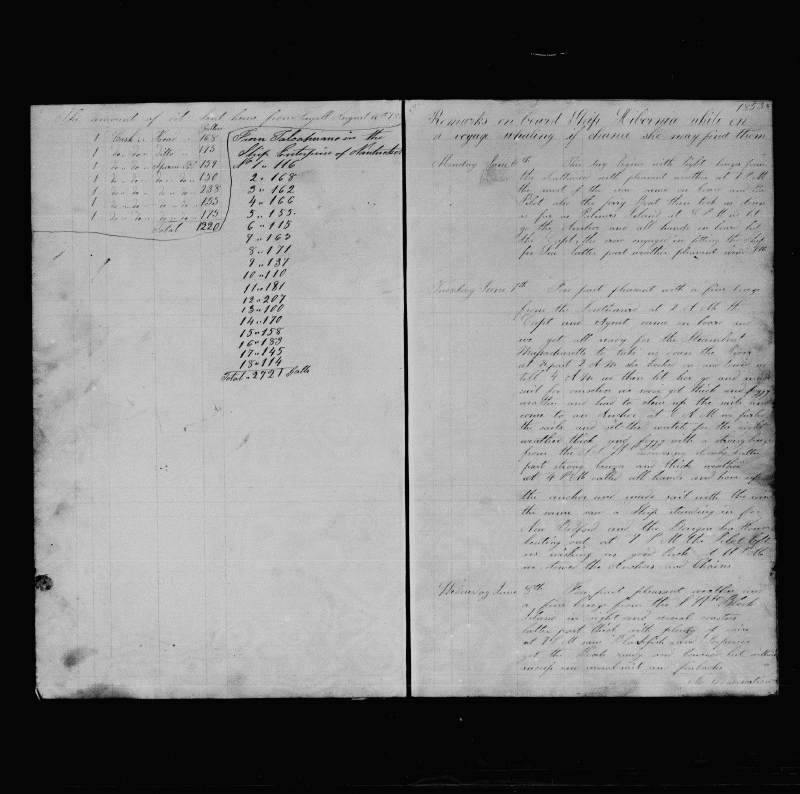 The amount of oil sent home from Fayall August 10th 185
Gallons
1 Cask .. Head .. 168
1 do .. do .. Ditto .. 175
1 do .. do .. Sperm 159
1 do .. do .. do .. do .. 150
1 do .. do .. do .. do .. 238
1 do .. do .. do .. do .. 155
1 do .. do .. do .. do .. 175
Total 1220
From Talcahuano in the
Ship Enterprise of Nantucket
No 1 .. 116
2 .. 168
3 .. 162
4 .. 166
5 .. 155
6 .. 115
7 .. 163
8 .. 171
9 .. 137
10 .. 110
11 .. 181
12 .. 207
13 .. 100
14 .. 170
15 .. 158
16 .. 183
17 .. 145
18 .. 114
Total .. 2721 Galls
1853
Remarks on board Ship Hibernia while on
a voyage whaling if chance she may find them
Monday June 6th This day begins with light breeze from
the Southward with pleasant weather at 1 P M
the most of the crew came on board and the
Pilot also the ferry Boat then took us down
as far as Palmers Island at 8 P M we let
go the Anchor and all hands on board but
the Capt, the crew engaged in fitting the Ship
for Sea latter part weather pleasant wind
Tuesday June 7th Fore part pleasant with a fine breeze
from the Southward at 2 A M the
Capt and Agent came on board and
we got all ready for the Steamboat
Massachusetts to take us down the River
at ½ past 2 A M she hooked on and towed us
till 4 A M we then let her go and made
sail for ourselves we soon got thick and foggy
weather and had to clew up the sails and
come to an Anchor, at A M we furled
the sails and set the watch for the night
weather thick and foggy with a strong breeze
from the latter
part strong breezes and thick weather
at 4 P M called all hands and hove up
the anchor and made sail with the wind
the same saw a Ship standing in for
New Bedford and the
beating out at 1 P M the Pilot left
us wishing us good luck at P M
we stowed the Anchors and Chains
Wednesday June 8th Fore part pleasant weather and
a fine breeze from the S W Block
Island in sight and several coasters
latter part thick with plenty of rain
at P M saw Blackfish and Porpoises
got the Boats ready and lowered but without
success saw several and finbacks
No Observation